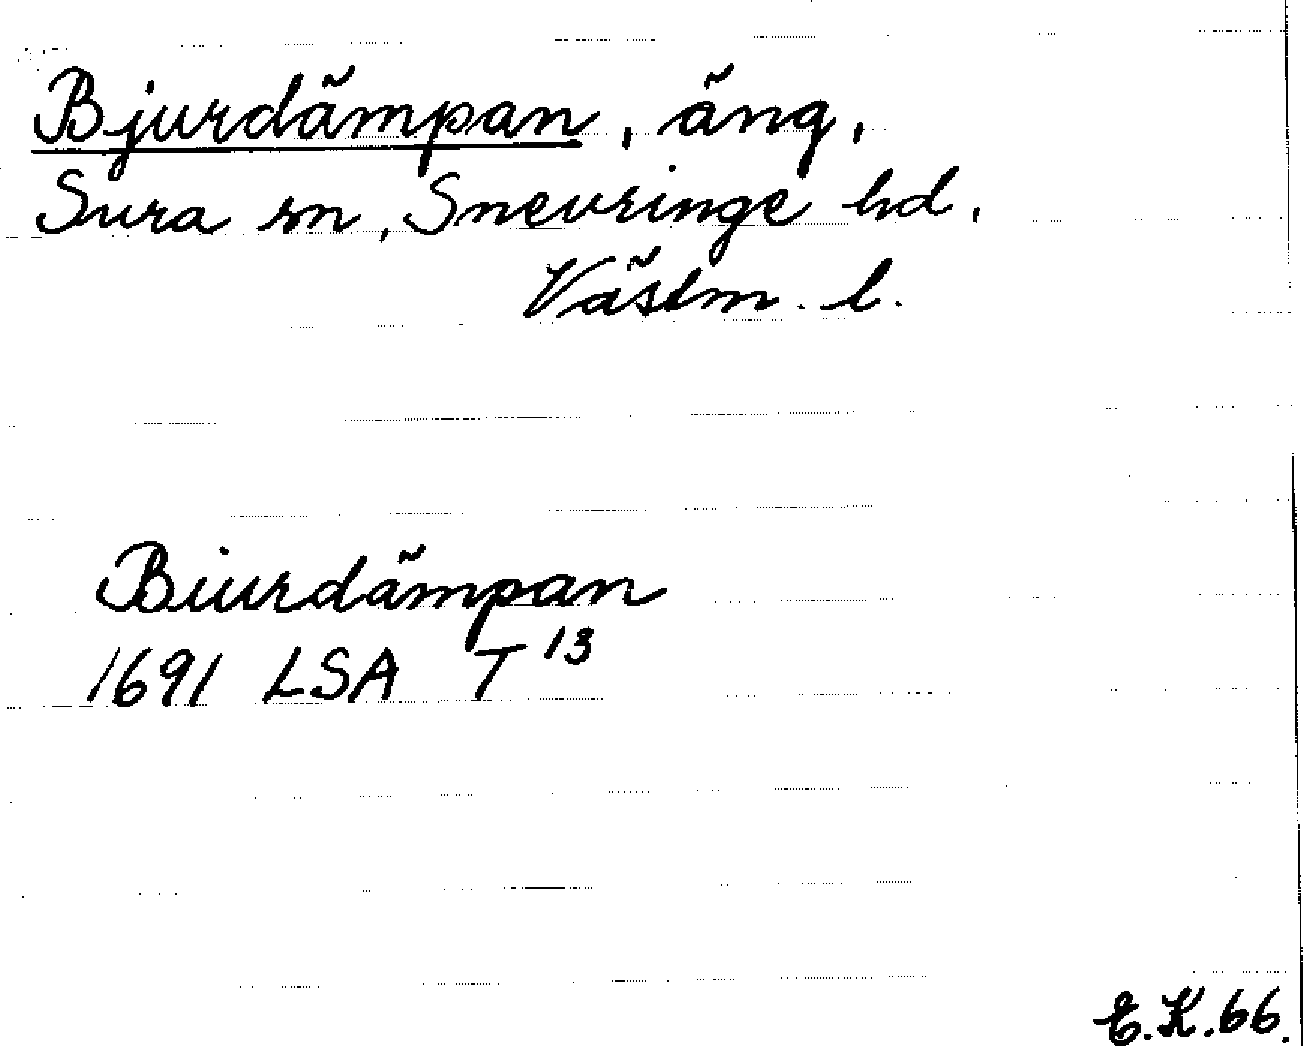 Bjurdämpan, äng,
Sura sn, Snevringe hd.
Västm. l.
Biurdämpan
1691 LSA T 13
E.K.66.